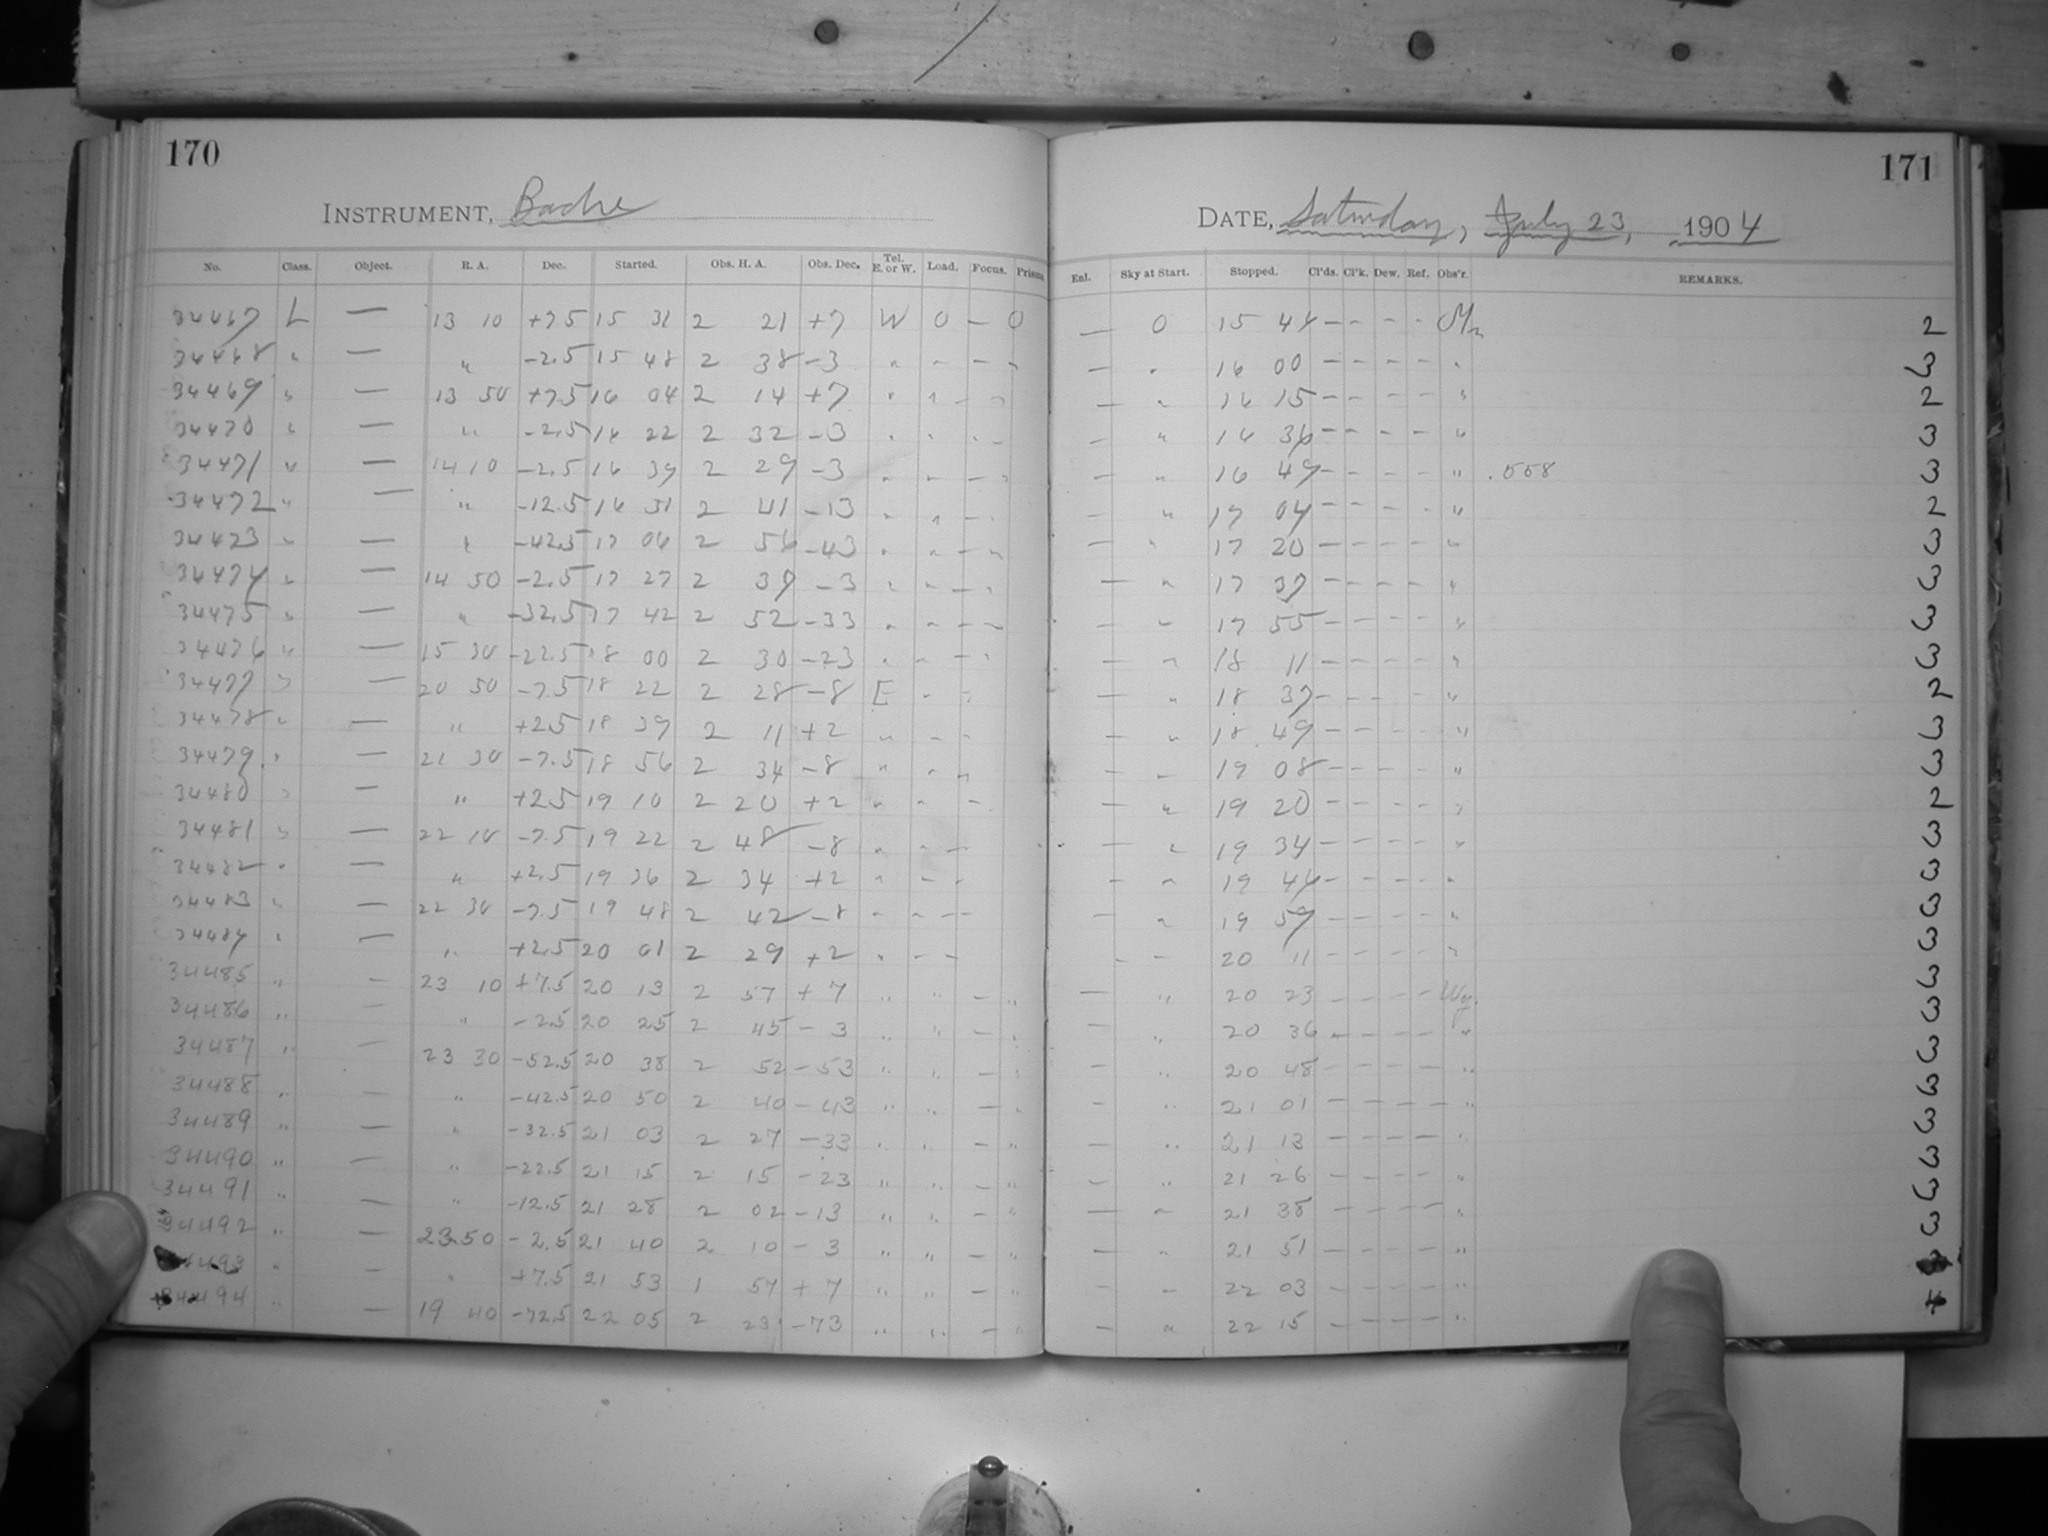 170
171
INSTRUMENT, Bache
DATE, Saturday, July 23, 1904
No. Class. Object. R. A. Dec. Started. Obs. H. A. Obs. Dec. Tel. E. or W. Load. Focus. Prism Enl. Sky at Start. Stopped. Cl'ds. Cl'k. Dew. Ref. Obs'r. REMARKS.
34467 L — 13 10 +7.5 15 31 2 21 +7 W 0 — 0 — 0 15 44 - - - - 2
34468 " — " -2.5 15 48 2 38 -3 " - - " — " 16 00 - - - - " 3
34469 " — 13 50 +7.5 16 04 2 14 +7 " " - " — " 16 15 - - - - " 2
34470 " — " -2.5 16 22 2 32 -3 " " - - — " 16 36 - - - - " 3
34471 " — 14 10 -2.5 16 39 2 29 -3 " - - " — " 16 49 - - - - " .558 3
34472 " — " -12.5 16 51 2 41 -13 " " - " — " 17 04 - - - - " 2
34473 " — " -42.5 17 06 2 56 -43 " " - " — " 17 20 - - - - " 3
34474 " — 14 50 -2.5 17 27 2 37 -3 " " - " — " 17 37 - - - - " 3
34475 " — " -32.5 17 42 2 52 -33 " - - - — " 17 55 - - - - " 3
34476 " — 15 30 -22.5 18 00 2 30 -23 " " - " — " 18 11 - - - - " 3
34477 " — 20 50 -7.5 18 22 2 28 -8 E " " — " 18 37 - - - - " 2
34478 " — " +2.5 18 39 2 11 +2 " - - — " 18 49 - - - - " 3
34479 " — 21 30 -7.5 18 56 2 34 -8 " " " — " 19 08 - - - - " 3
34480 " — " +2.5 19 10 2 20 +2 " " - — " 19 20 - - - - " 2
34481 " — 22 10 -7.5 19 22 2 48 -8 " - - — " 19 34 - - - - " 3
34482 " — " +2.5 19 36 2 34 +2 " - - — " 19 46 - - - - " 3
34483 " — 22 30 -7.5 19 48 2 42 -8 " " - - — " 19 59 - - - - " 3
34484 " — " +2.5 20 01 2 29 +2 " - - - - 20 11 - - - - " 3
34485 " — 23 10 +7.5 20 13 2 57 +7 " " — " — " 20 23 - - - - Wy. 3
34486 " — " -2.5 20 25 2 45 -3 " " — " — " 20 36 - - - - " 3
34487 " — 23 30 -52.5 20 38 2 52 -53 " " — " — " 20 48 - - - - " 3
34488 " — " -42.5 20 50 2 40 -43 " " — " — " 21 01 - - - - " 3
34489 " — " -32.5 21 03 2 27 -33 " " — " — " 21 13 - - - - " 3
34490 " — " -22.5 21 15 2 15 -23 " " — " — " 21 26 - - - - " 3
34491 " — " -12.5 21 28 2 02 -13 " " — " — " 21 38 - - - - " 3
34492 " — 23 50 -2.5 21 40 2 10 -3 " " — " — " 21 51 - - - - " 3
" — " +7.5 21 53 1 57 +7 " " — " — " 22 03 - - - - "
34494 " — 19 40 -72.5 22 05 2 -73 " " — " — " 22 15 - - - - "